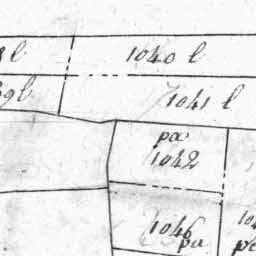 8 l 1040 l
39 l 1041 l
pa
1042
1046
pa
104
pa